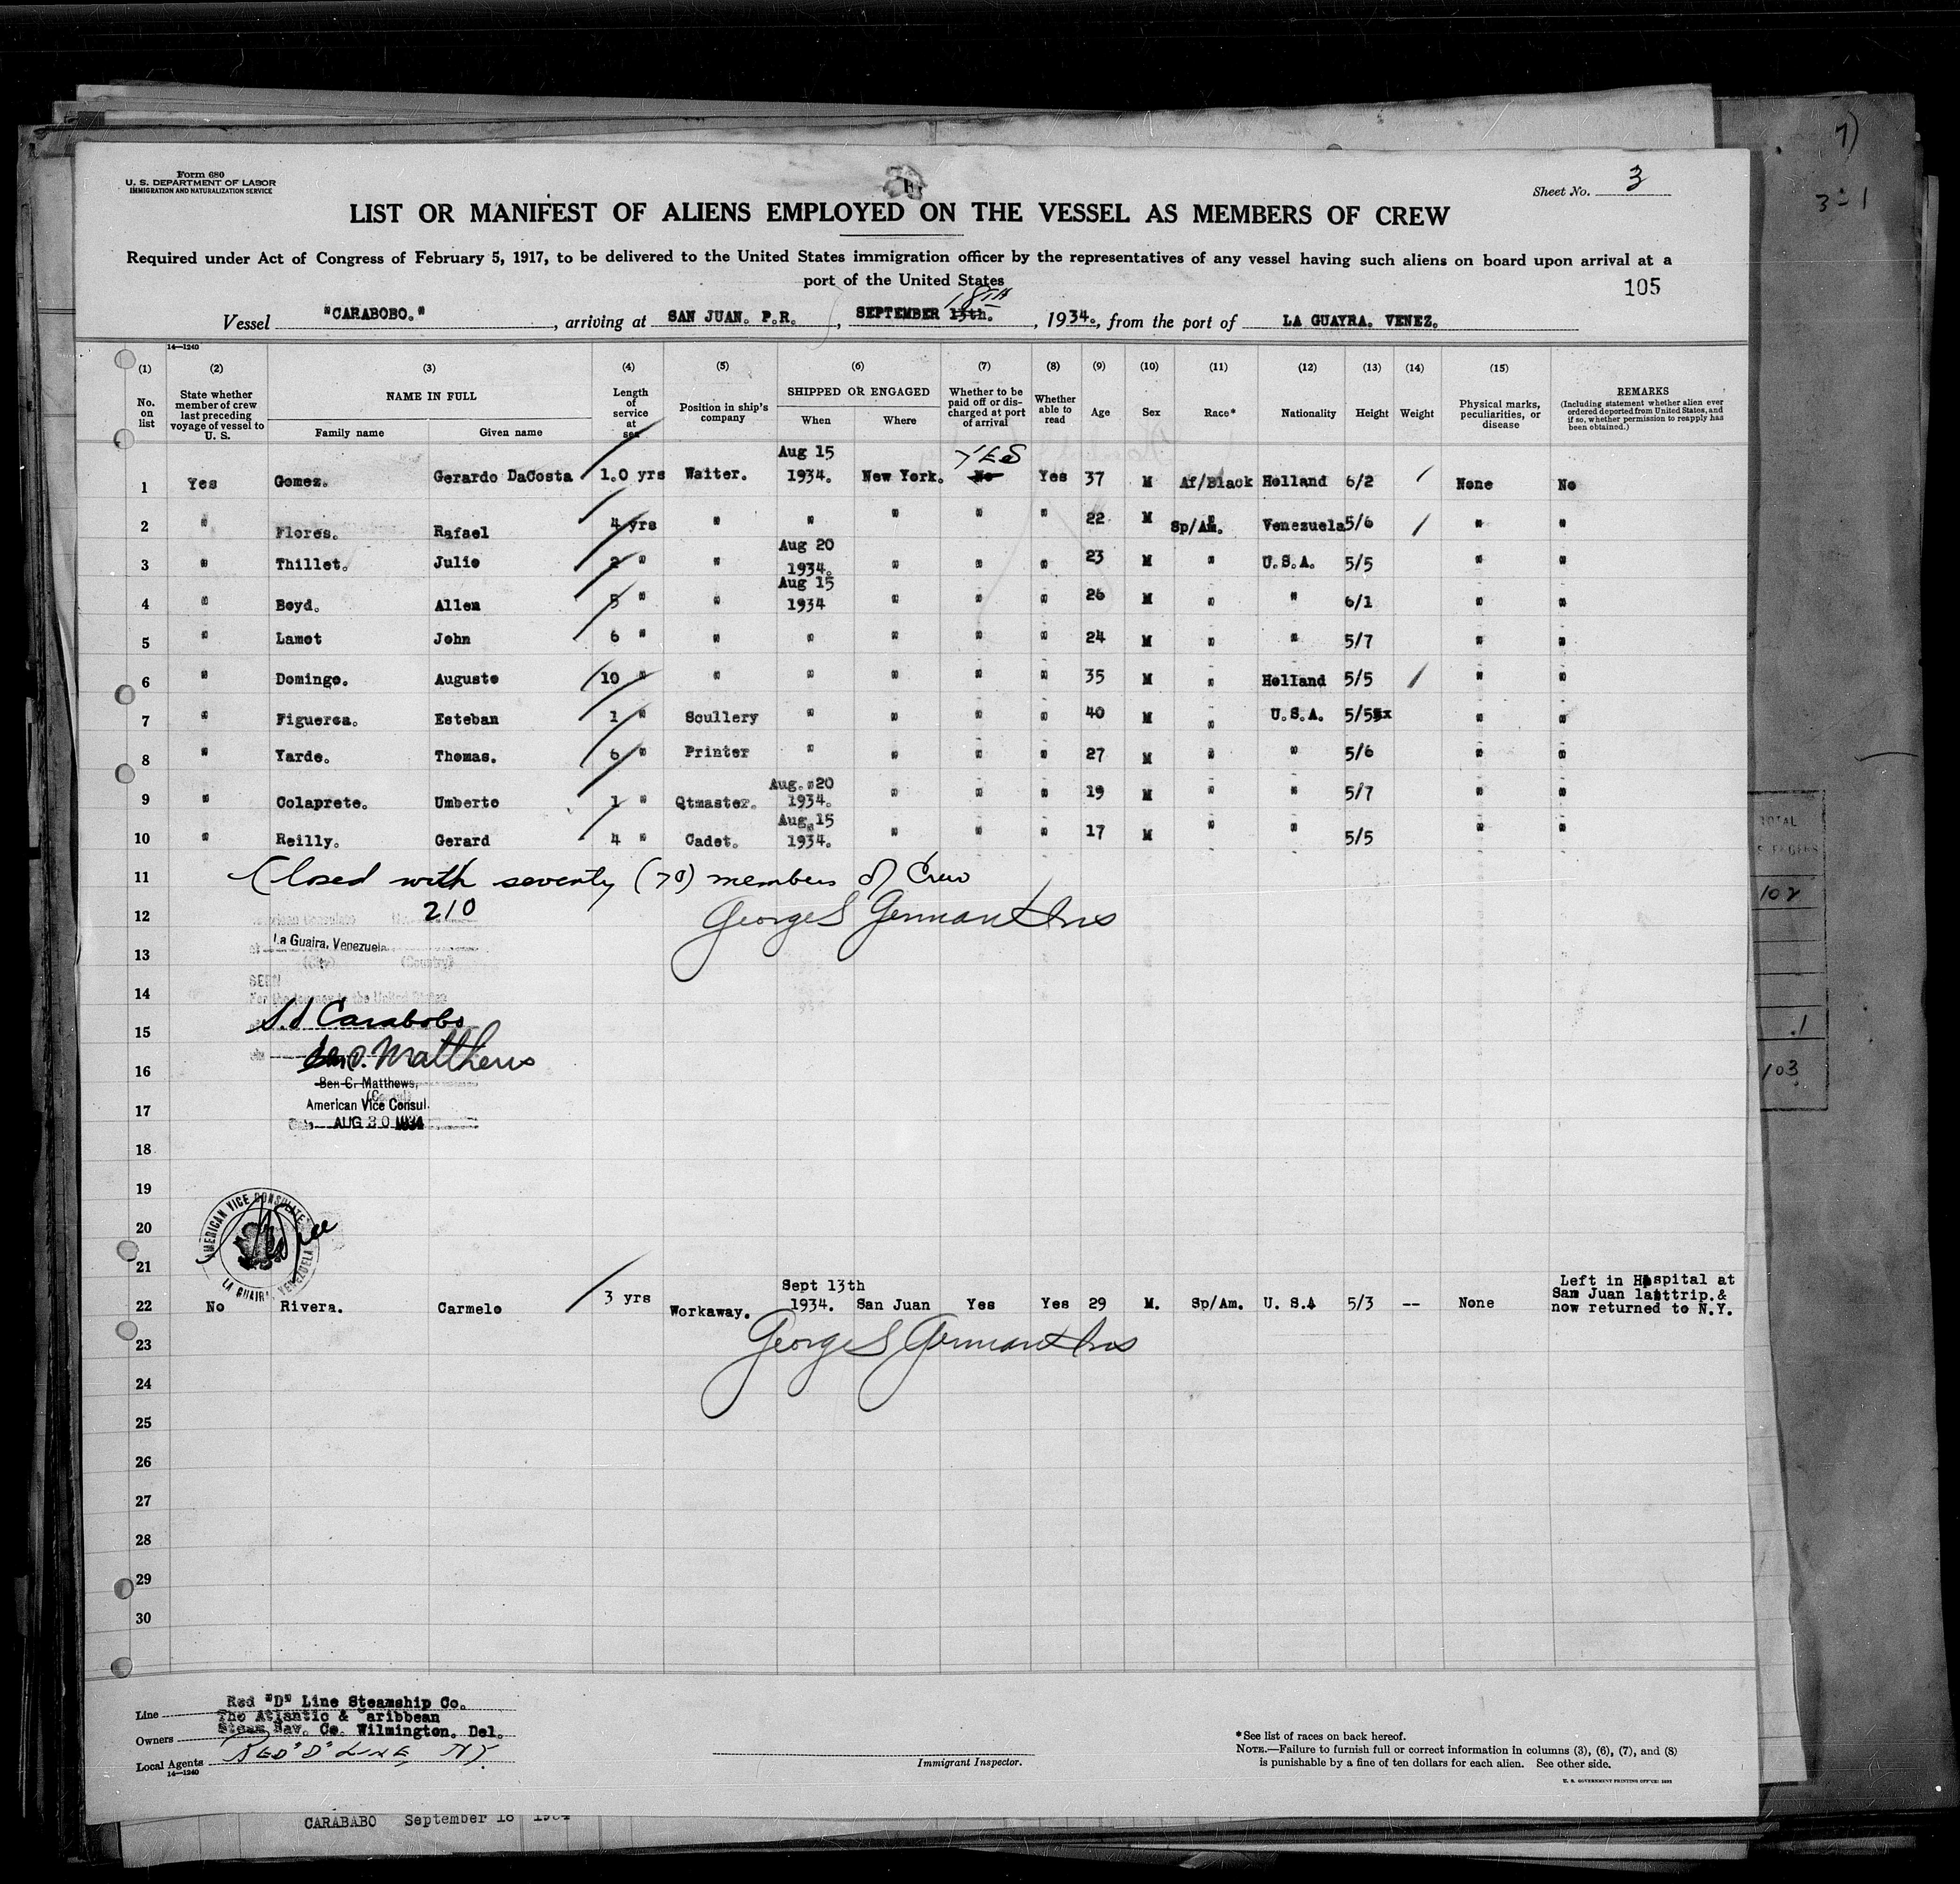 7)
3-1
Form 680
U. S. DEPARTMENT OF LABOR
IMMIGRATION AND NATURALIZATION SERVICE
Sheet No. 3
LIST OR MANIFEST OF ALIENS EMPLOYED ON THE VESSEL AS MEMBERS OF CREW
Required under Act of Congress of February 5, 1917, to be delivered to the United States immigration officer by the representatives of any vessel having such aliens on board upon arrival at a
port of the United States
105
18TH
Vessel "CARABOBO." , arriving at SAN JUAN. P.R. , SEPTEMBER 13th. , 1934., from the port of LA GUAYRA. VENEZ.
14—1240
(1) (2) (3) (4) (5) (6) (7) (8) (9) (10) (11) (12) (13) (14) (15)
No. on list State whether member of crew last preceding voyage of vessel to U. S. NAME IN FULL Family name Given name Length of service at sea Position in ship's company SHIPPED OR ENGAGED When Where Whether to be paid off or discharged at port of arrival Whether able to read Age Sex Race* Nationality Height Weight Physical marks, peculiarities, or disease REMARKS (Including statement whether alien ever ordered deported from United States, and if so, whether permission to reapply has been obtained.)
Aug 15 YES
1 Yes Gomez. Gerardo DaCosta 1.0 yrs Waiter. 1934. New York. No Yes 37 M Af/Black Holland 6/2 None No
2 " Flores. Rafael 4 yrs " " " " " 22 M Sp/Am. Venezuela 5/6 " "
Aug 20
3 " Thillet. Julio 2 " " 1934. " " " 23 M " U.S.A. 5/5 " "
Aug 15
4 " Boyd. Allen 5 " " 1934 " " " 26 M " " 6/1 " "
5 " Lamot John 6 " " " " " " 24 M " " 5/7 " "
6 " Domingo. Augusto 10 " " " " " " 35 M " Holland 5/5 " "
7 " Figueroa. Esteban 1 " Scullery " " " " 40 M " U.S.A. 5/5 " "
8 " Yarde. Thomas. 6 " Printer " " " " 27 M " " 5/6 " "
Aug. 20
9 " Colaprete. Umberto 1 " Qtmaster. 1934. " " " 19 M " " 5/7 " "
Aug 15
10 " Reilly. Gerard 4 " Cadet. 1934. " " " 17 M " " 5/5 " "
11 Closed with seventy (70) members of Crew
12 210
13 La Guaira, Venezuela
(City) (Country)
14 SEEN
For the journey to the United States
15 S.S Carabobo
16 Ben C. Matthews
Ben C. Matthews,
17 American Vice Consul.
AUG 30 1934
18
19
20 AMERICAN VICE CONSULATE
21 LA GUAIRA, VENEZUELA
Sept 13th Left in Hospital at
22 No Rivera. Carmelo 3 yrs Workaway. 1934. San Juan Yes Yes 29 M. Sp/Am. U. S.A 5/3 -- None San Juan last trip.&
now returned to N.Y.
23
24
25
26
27
28
29
30
Line Red "D" Line Steamship Co.
The Atlantic & aribbean
Owners Steam Nav. Co. Wilmington. Del.
Local Agents RED "D" LINE, NY.
14—1240
Immigrant Inspector.
*See list of races on back hereof.
NOTE.—Failure to furnish full or correct information in columns (3), (6), (7), and (8)
is punishable by a fine of ten dollars for each alien. See other side.
TOTAL
102
.1
103
CARABABO September 18 1934